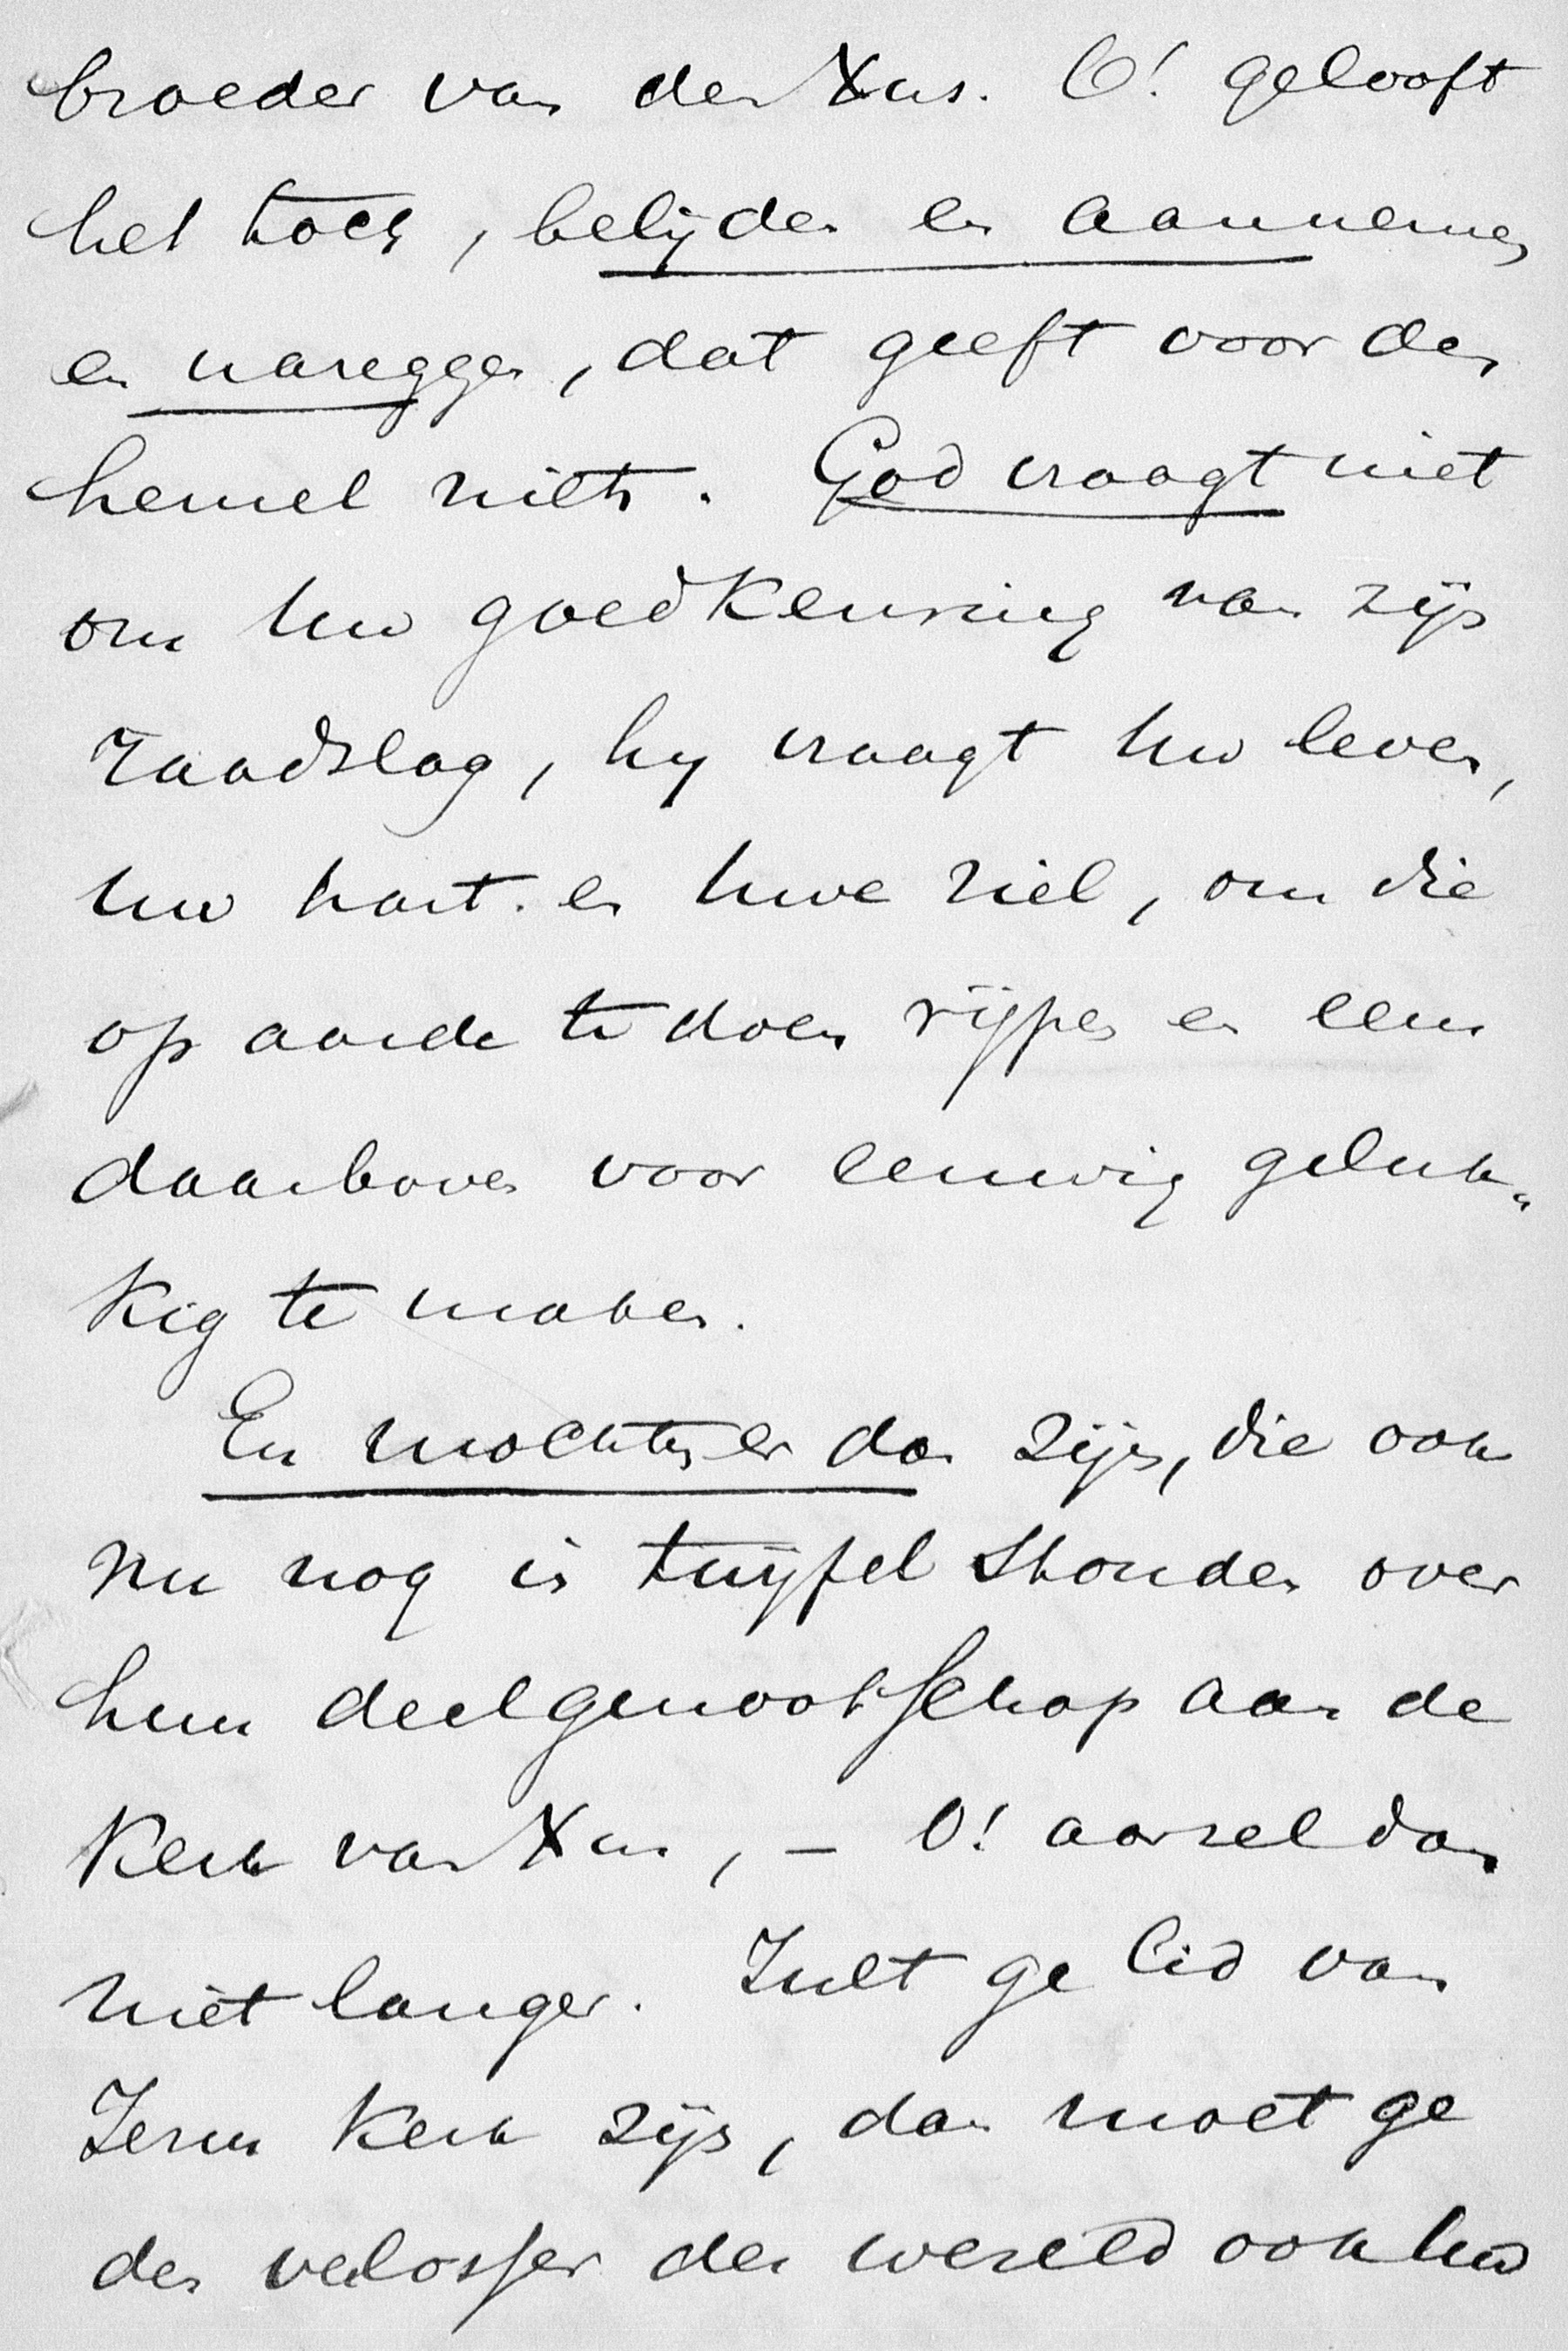 broeder van den Xus. O! gelooft
het toch, belijden en aannemen
en nazeggen, dat geeft voor den
hemel niets. God vraagt niet
om Uw goedkeuring van zijn
raadslag, hy vraagt Uw leven,
Uw hart en Uwe ziel, om die
op aarde te doen rijpen en eens
daarboven voor eeuwig geluk„
kig te maken.
En mochten er dan zijn, die ook
nu nog in twijfel stonden over
hun deelgenootschap aan de
Kerk van Xus, – O! aarzel dan
niet langer. Zult ge lid van
Jezus Kerk zijn, dan moet ge
den verlosser der wereld ook Uw